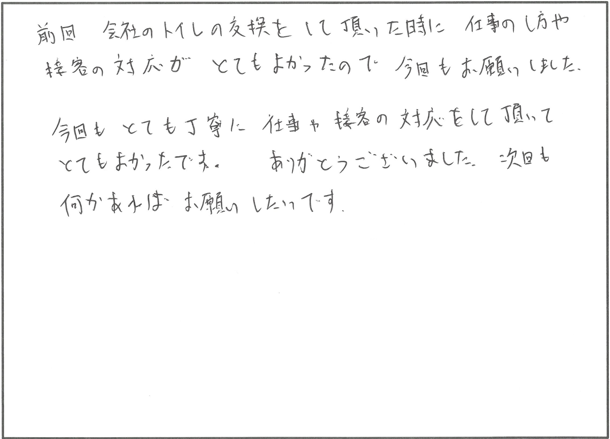 前回 会社のトイレの交換をして頂いた時に 仕事のし方や
接客の対応が とてもよかったので 今回もお願いしました.
今回も とても丁寧に 仕事や接客の対応をして頂いて
とてもよかったです。 ありがとうございました. 次回も
何かあれば お願いしたいです.